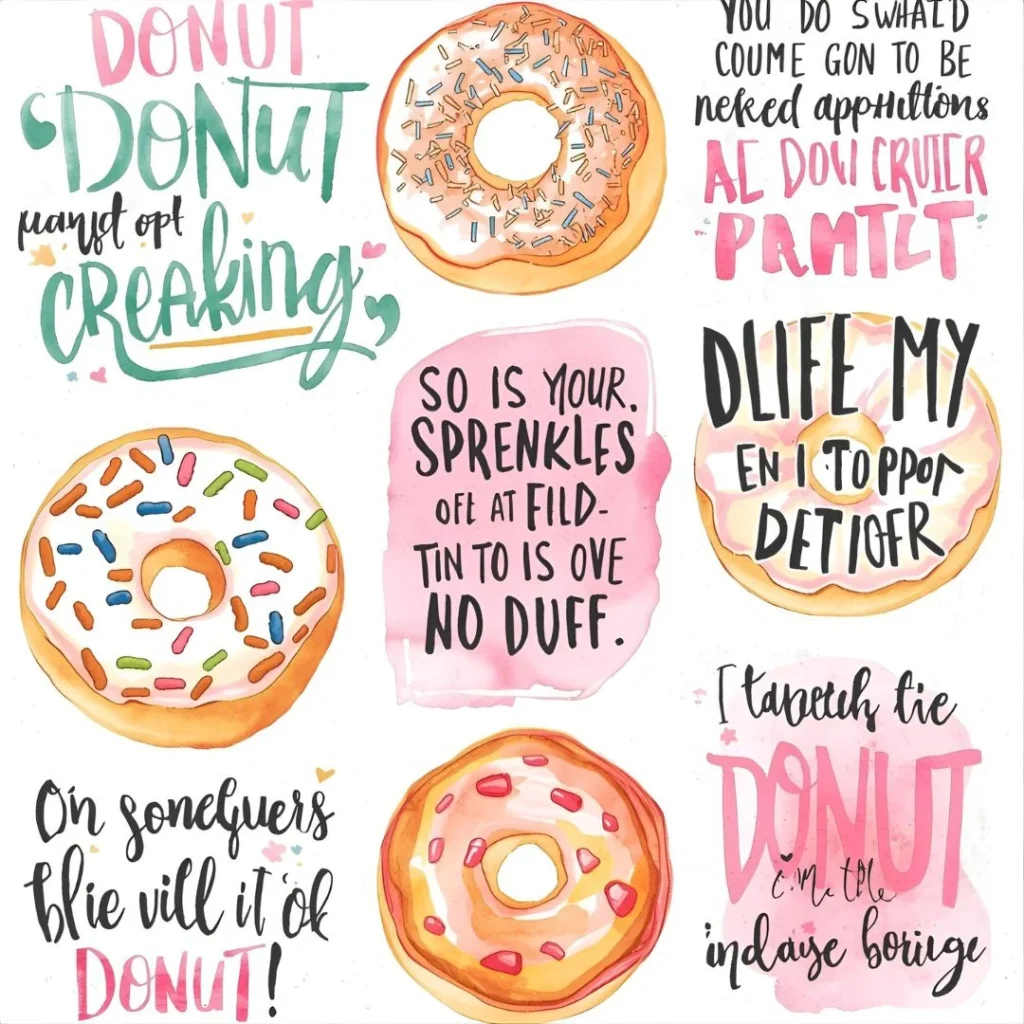 DONUT
“DONUT
opt
CREAking”
YOU DO SWHAT'D
COUME GON TO BE
neked
AE DOWI CRUIER
PRMTLT
SO IS YOUR.
SPRENKLES
OFE AT FILD-
TIN TO IS OVE
NO DUFF.
DLIFE MY
EN I TO PPOr
DETIOFR
On soneguers
blie vill it ok
DONUT!
I tie
DONUT
indaye boriuge